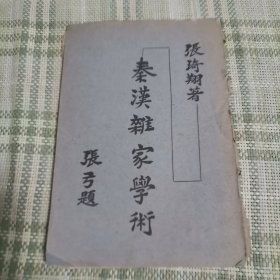 張琦翔著
秦漢雜家學術
張弓題